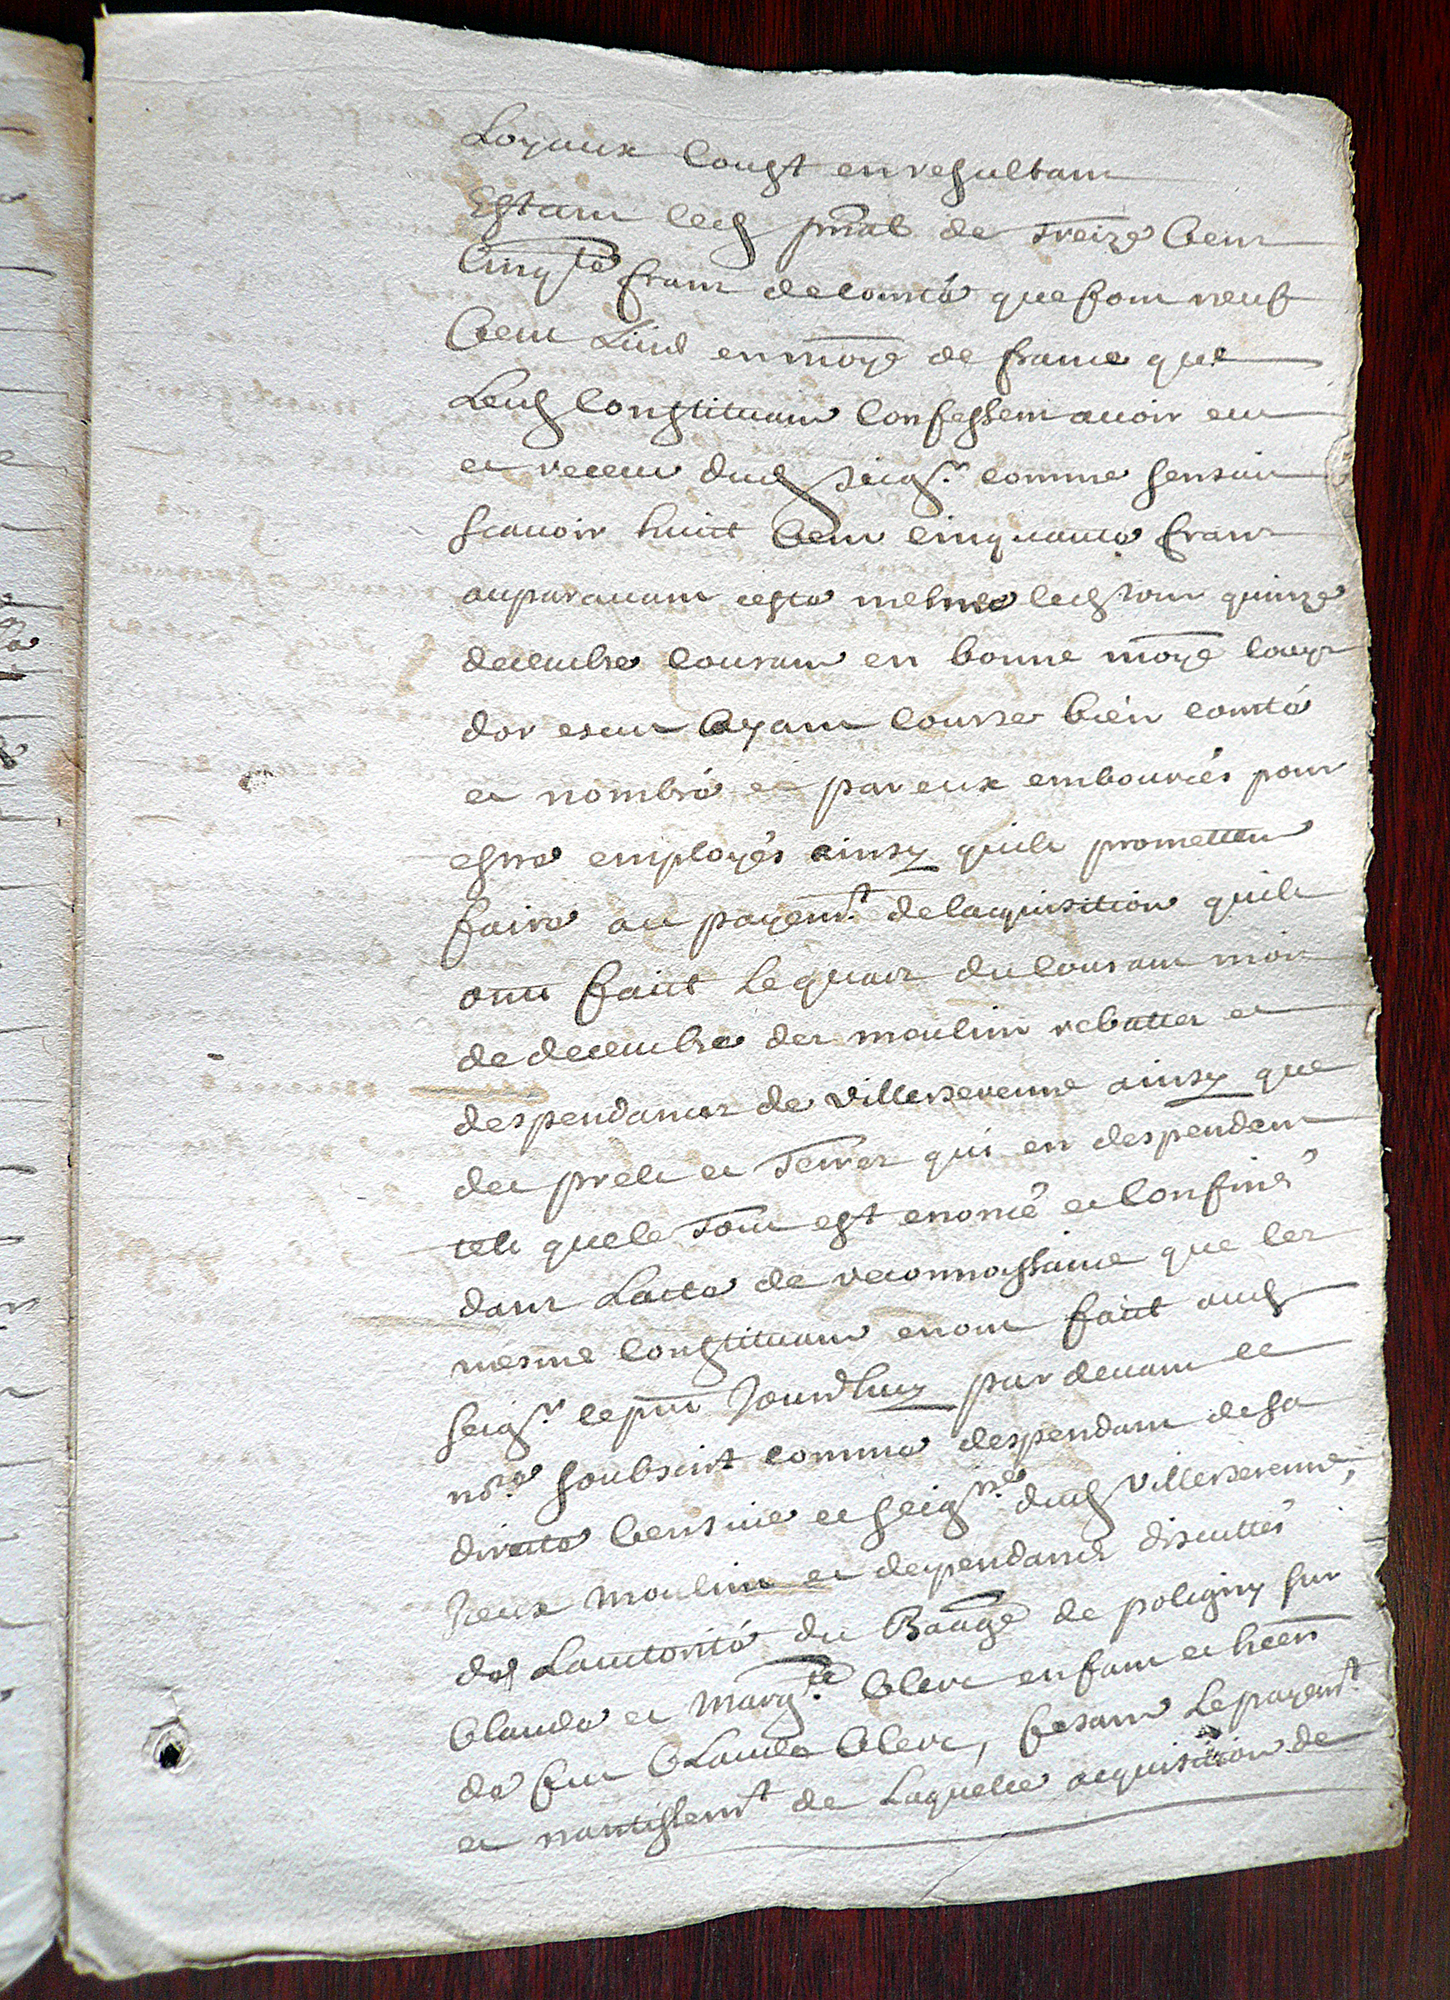 Loyaux coust en resultans
Estant led prnal de treize cens
cinqte franc de comté que font neuf
cens livres en monoye de france que
lesd constituans confessent avoir eu
et receu dud seigr comme sensuit
scavoir huict cens cinquante franc
auparavant ceste mesme led jour quinze
decembre courant en bonne monoye louys
dor escus ayans course bien comté
et nombré et par eux embourcés pour
estre employés ainsy quils promettent
faire au payemt de lacquisition quils
ont faict le quatre du courant mois
de decembre des moulin rebatter et
despendances de villerserenne ainsy que
des prels et terres qui en despendent
tels que le tout est enoncé et confiné
dans lacte de reconnoissance que les
mesme constituans en ont faict aud
seigr le pnt jourdhuy par devant le
nore soubscrit comme despendant de sa
directe censive et seigrie dud villerserenne,
iceux moulin et despendances discuttés
de lauctorité du Baage de poligny sur
Claude et Margte Clerc enfans et hoers
de feu Claude Clerc, fesant le payemt
et nantissemt de laquelle acquisition de